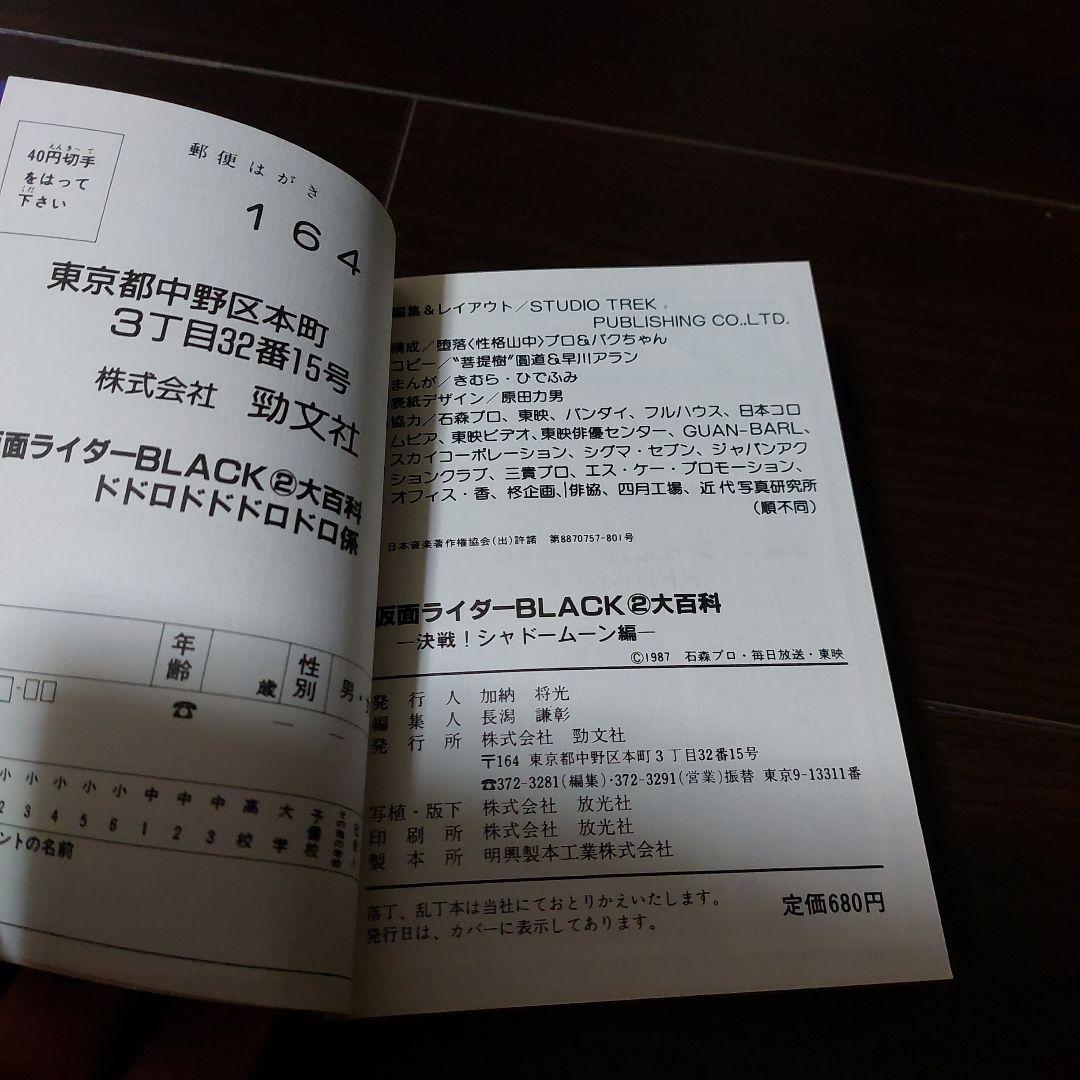 40円切手
をはって
下さい
郵便はがき
164
東京都中野区本町
3丁目32番15号
株式会社 勁文社
面ライダーBLACK②大百科
ドドロドドドロドロ係
年齢
歳
性別
男・
☎
小 小 小 小 小 中 中 中 高校 大学 予備校
2 3 4 5 6 1 2 3
ントの名前
編集&レイアウト/STUDIO TREK
PUBLISHING CO.,LTD.
構成/堕落〈性格山中〉プロ&バクちゃん
コピー/“菩提樹”圓道&早川アラン
まんが/きむら・ひでふみ
表紙デザイン/原田力男
協力/石森プロ、東映、バンダイ、フルハウス、日本コロ
ムビア、東映ビデオ、東映俳優センター、GUAN-BARL、
スカイコーポレーション、シグマ・セブン、ジャパンアク
ションクラブ、三貴プロ、エス・ケー・プロモーション、
オフィス・香、柊企画、俳協、四月工場、近代写真研究所
(順不同)
日本音楽著作権協会(出)許諾 第8870757-801号
仮面ライダーBLACK②大百科
―決戦!シャドームーン編―
©1987 石森プロ・毎日放送・東映
発行人 加納 将光
編集人 長潟 謙彰
発行所 株式会社 勁文社
〒164 東京都中野区本町3丁目32番15号
☎372-3281(編集)・372-3291(営業)振替 東京9-13311番
写植・版下 株式会社 放光社
印刷所 株式会社 放光社
製本所 明興製本工業株式会社
落丁、乱丁本は当社にておとりかえいたします。
発行日は、カバーに表示してあります。
定価680円